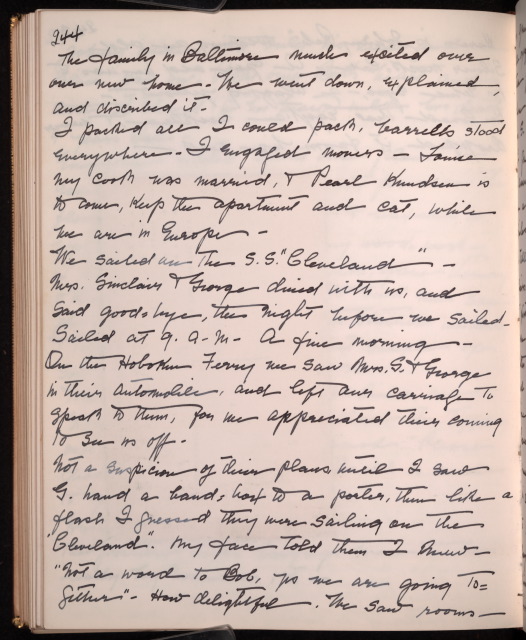 244
The family in Baltimore much excited over
our new home - We went down, explained,
and discribed it -
I packed all I could pack, barrells stood
everywhere - I engaged movers - Louise
my cook was married, & Pearl Knudsen is
to come, keep the apartment and cat, while
we are in Europe -
We sailed on the S.S. "Cleveland" -
Mrs. Sinclair & George dined with us, and
said good-bye, the night before we sailed -
Sailed at 9. a.m - A fine morning -
On the Hoboken Ferry we saw Mrs. S. & George
in their automobile, and left our carriage to
speak to them, for we appreciated their coming
to see us off -
Not a suspicion of their plans until I saw
G. hand a hand-box to a porter, then like a
flash I guessed they were sailing on the
"Cleveland". My face told them I knew -
"Not a word to Bob, yes we are going to=
gether" - How delightful. We saw rooms -